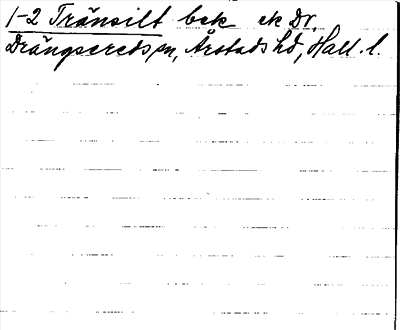 1-2 Tränsilt bek ek Dr.
Drängsereds sn, Årstads hd, Hall. l.